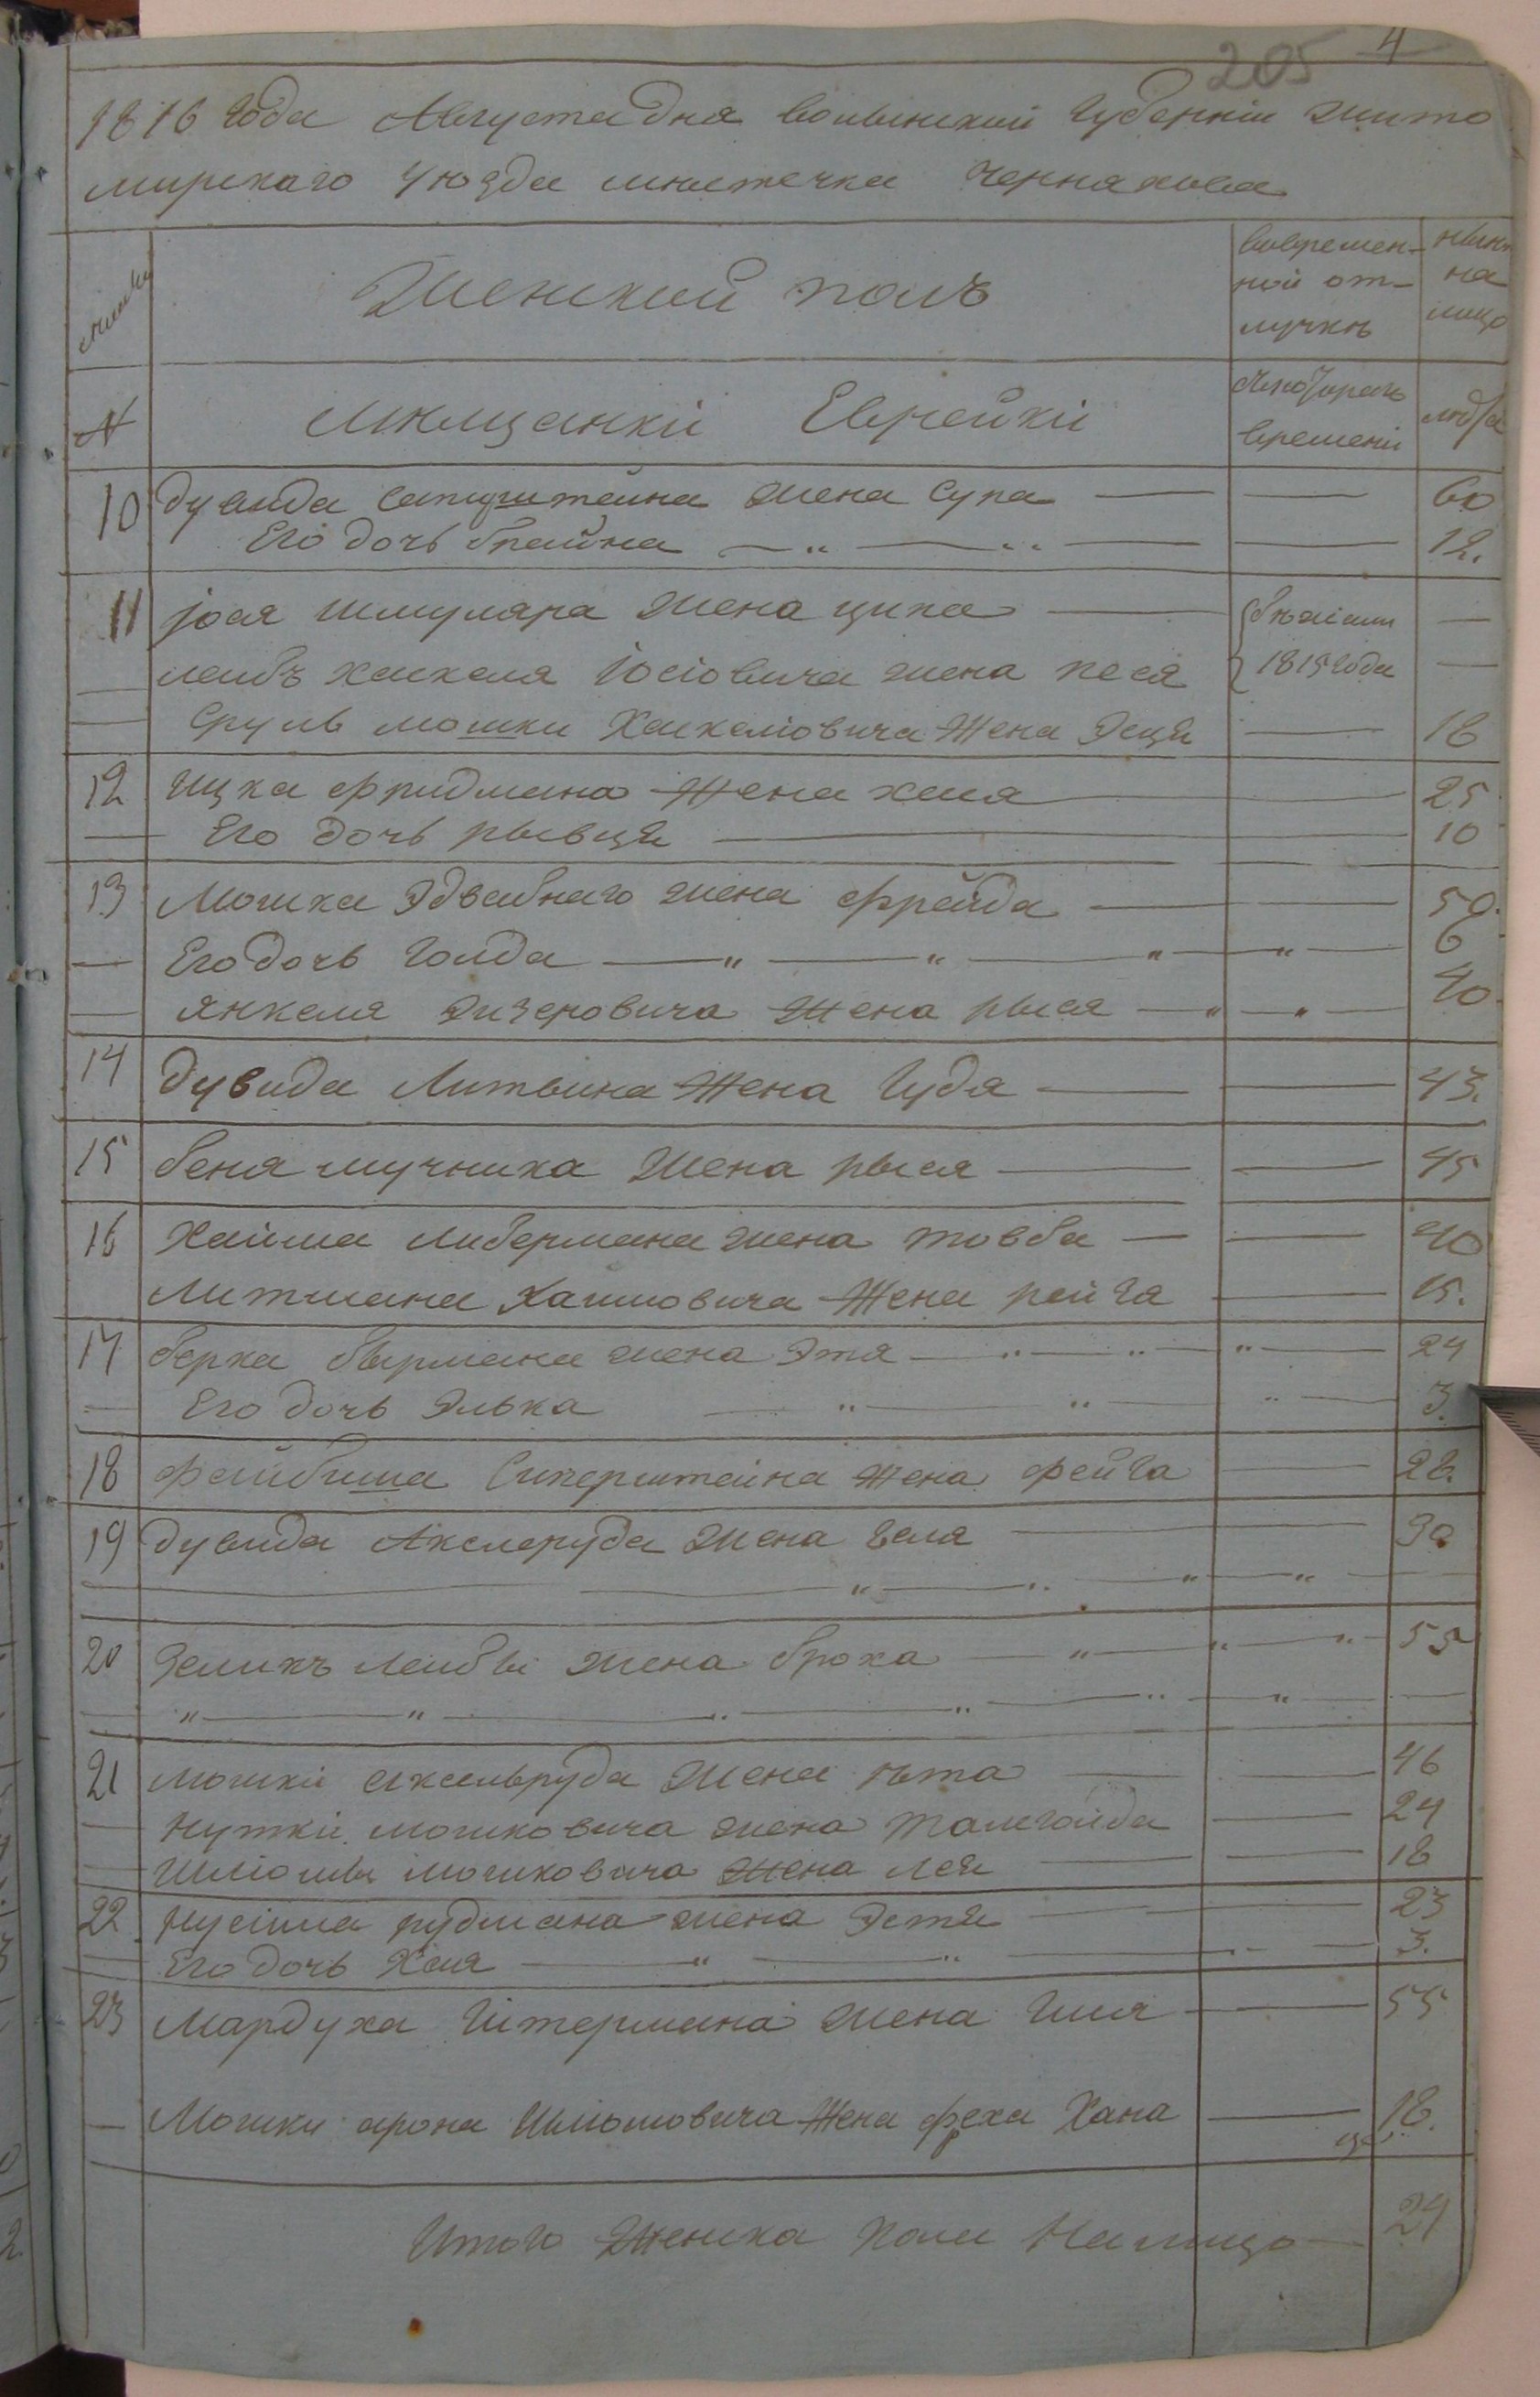 205 4
1816 года Августа дня волынской губернiи жито
мирскаго уюзда мюстечка Черняхова
Женский полъ
вовремен-
ной от-
лучкю
ныню
на
лицо
№
Мющанкiи Еврейкiи
съкоторагъ
временi
люта
10 дувида Сапирштейна жена Сура — — 60
Его дочь брайна — „ — „ — — 12.
11 Jося шмуляра жена ципа — —
лейбъ хаскеля Iосiовича жена песя — 1815 года —
Сруль мошки Хаскелiовича Жена Эсця — 18
12 Ицка фридмана Жена хая — — 25
— Его дочь рывця — — 10
13 Мошка Эдвабнаго жена фрейда — — 50.
— Его дочь голда — „ — „ — „ — „ — 6
— Янкеля Эизеровича Жена рыся — „ — „ — 40
14 дувида Литвина Жена Гудя — — 43.
15 беня мучника Жена рыся — — 45
16 Хаима либермана жена товба — — 40
Литмана Хаимовича Жена рейзя — 15.
17 берка бырмана жена Этя — „ — „ — „ — 24
— Его дочь Элька — „ — „ — „ — 3.
18 файбиша Сиперштейна жена фейга — 28.
19 дувида Акслеруда жена геля — — 30
— — „ — „ — „ — „ —
20 Зеликъ лейбы жена броха — „ — „ — „ — 55
— „ — „ — „ — „ — „ — „ — —
21 мошки аксельруда жена гыта — — 46
— Нуткi мошковича жена тамголда — 24
— Шлiомы мошковича жена лея — — 18
22. Нусiма рудмана жена Эстя — — 23
— Его дочь Хая — „ — „ — „ — 3.
23 Мардуха Гiтермана жена Гиля — 55
— Мошки арона Шлiомовича Жена фрха Хана — 18.
Итого Женска пола Налицо — 24